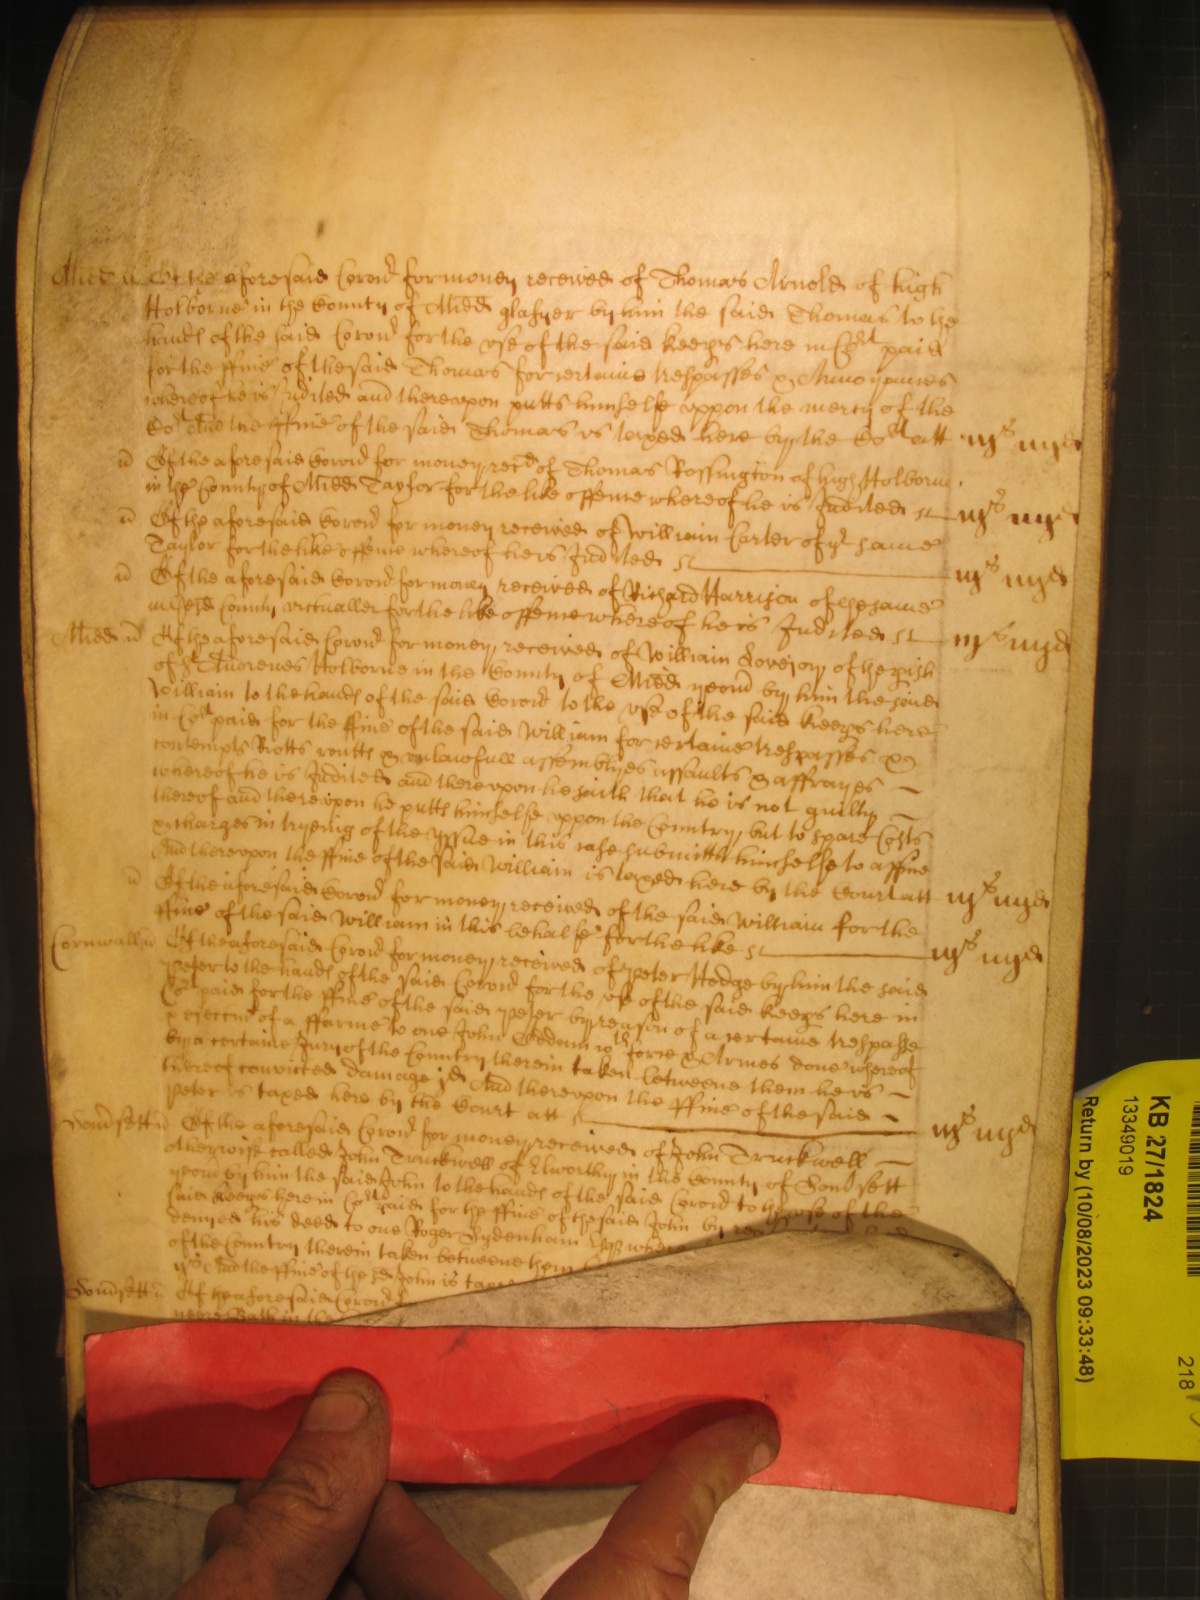 Midd ss Of the aforesaid Coron~ for money received of Thomas Arnold of high
Holborne in the County of Midd glasyer by him the said Thomas to the
hands of the said Coron~ for the use of the said Keeps here in Court paid
for the ffine of the said Thomas for certaine trespasses & Annoyances
whereof he is Indited and thereupon putts himselfe uppon the mercy of the
Court And the ffine of the said Thomas is taxed here by the Court att iijs iiijd
ss Of the aforesaid Coron~ for money recd of Thomas Rossington of high Holborne
in the County of Midd Taylor for the like offence whereof he is Indited iijs iiijd
ss Of the aforesaid Coron~ for money received of William Carter of ye same
Taylor for the like offence whereof he is Indited iijs iiijd
ss Of the aforesaid Coron~ for money received of Richard Harrison of the same
County victualler for the like offence whereof he is Indited iijs iiijd
Midd ss Of the aforesaid Coron~ for money received of William Lovejoy of the pish
of St Andrewes Holborne in the County of Midd yeom~ by him the said
William to the hands of the said Coron~ to the use of the said Keeps here
in Court paid for the ffine of the said William for certaine trespasses &
contempts Riotts routts & unlawfull assemblyes assaults & affrayes
whereof he is Indited and thereupon he saith that he is not guilty
thereof and thereupon he putts himselfe uppon the Country but to spare Costs
& charges in tryeing of the yssue in this case submitts himselfe to a ffine
And thereupon the ffine of the said William is taxed here by the Court att iijs iiijd
ss Of the aforesaid Coron~ for money received of the said William for the
ffine of the said William in this behalfe for the like iijs iiijd
Cornwall ss Of the aforesaid Coron~ for money received of Peter Hodge by him the said
Peter to the hands of the said Coron~ for the use of the said Keeps here in
Court paid for the ffine of the said Peter by reason of a certaine trespasse
& eieccon of a ffarme to one John wth force & Armes done whereof
by a certaine Jury of the Country therein taken betweene them he is
thereof convicted damage jd And thereupon the ffine of the said
Peter is taxed here by the Court att iijs iiijd
Somsett ss Of the aforesaid Coron~ for money received of John Truckwell
otherwise called John Truckwell of Elworthy in the County of Somsett
yeom~ by him the said John to the hands of the said Coron~ to the use of the
said Keeps here in Court paid for the ffine of the said John by
denyed his deed to one Roger Sydenham Esq
of the Country therein taken betweene them
And the ffine of the sd John is
Somsett ss Of the aforesaid Coron~
neere Bath in the
KB 27/1824
13349019
Return by (10/08/2023 09:33:48)
218